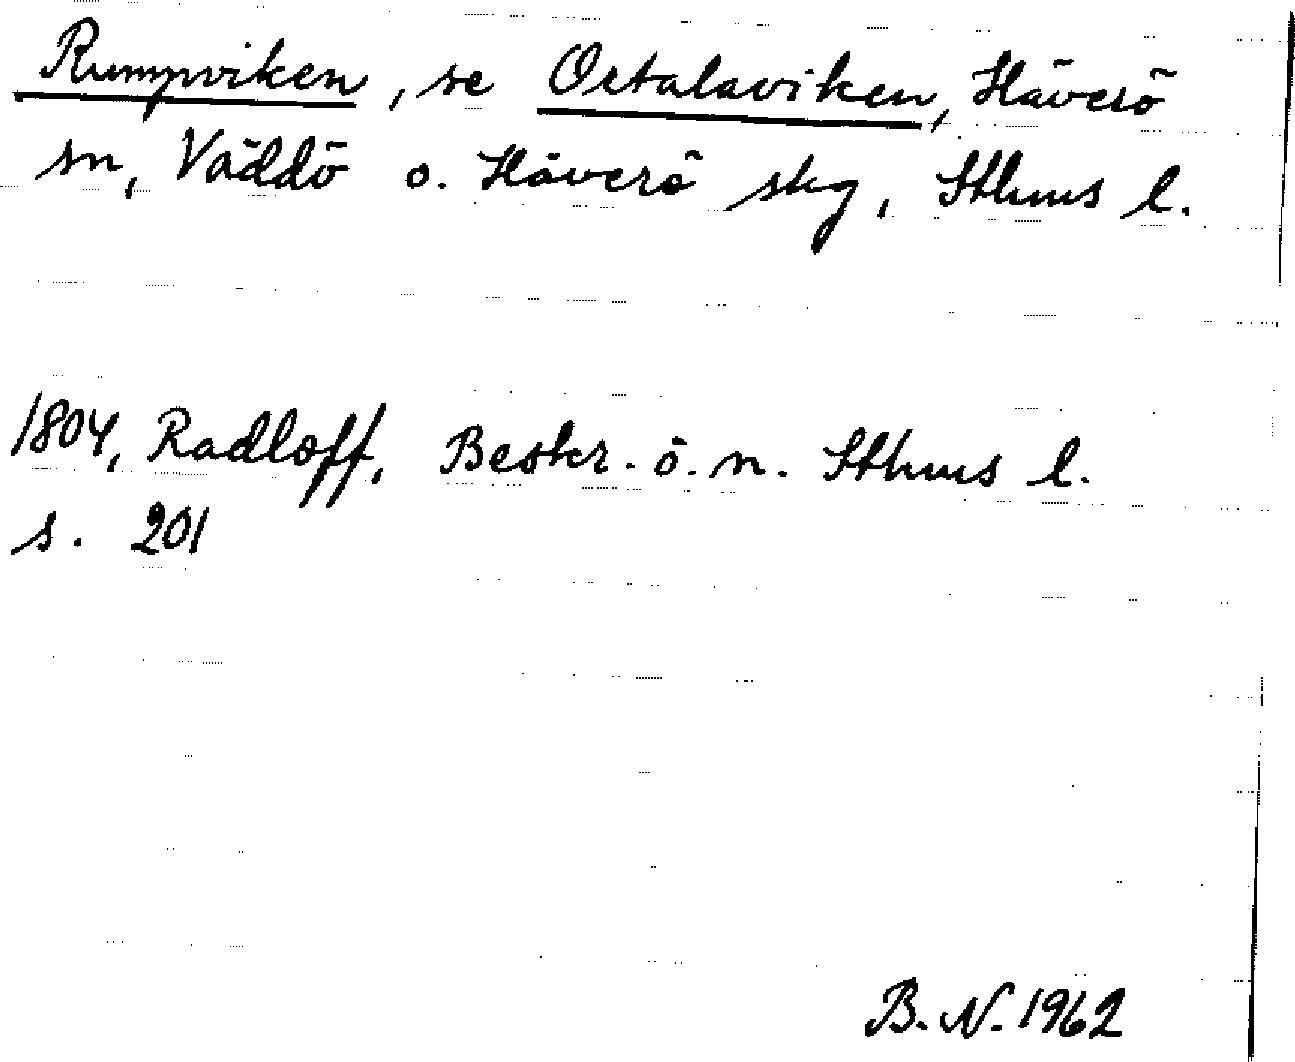 Rumpviken, se Ortalaviken, Häverö
sn, Väddö o. Häverö skg, Sthms l.
1804, Radloff, Beskr. ö. n. Sthms l.
s. 201
B. N. 1962